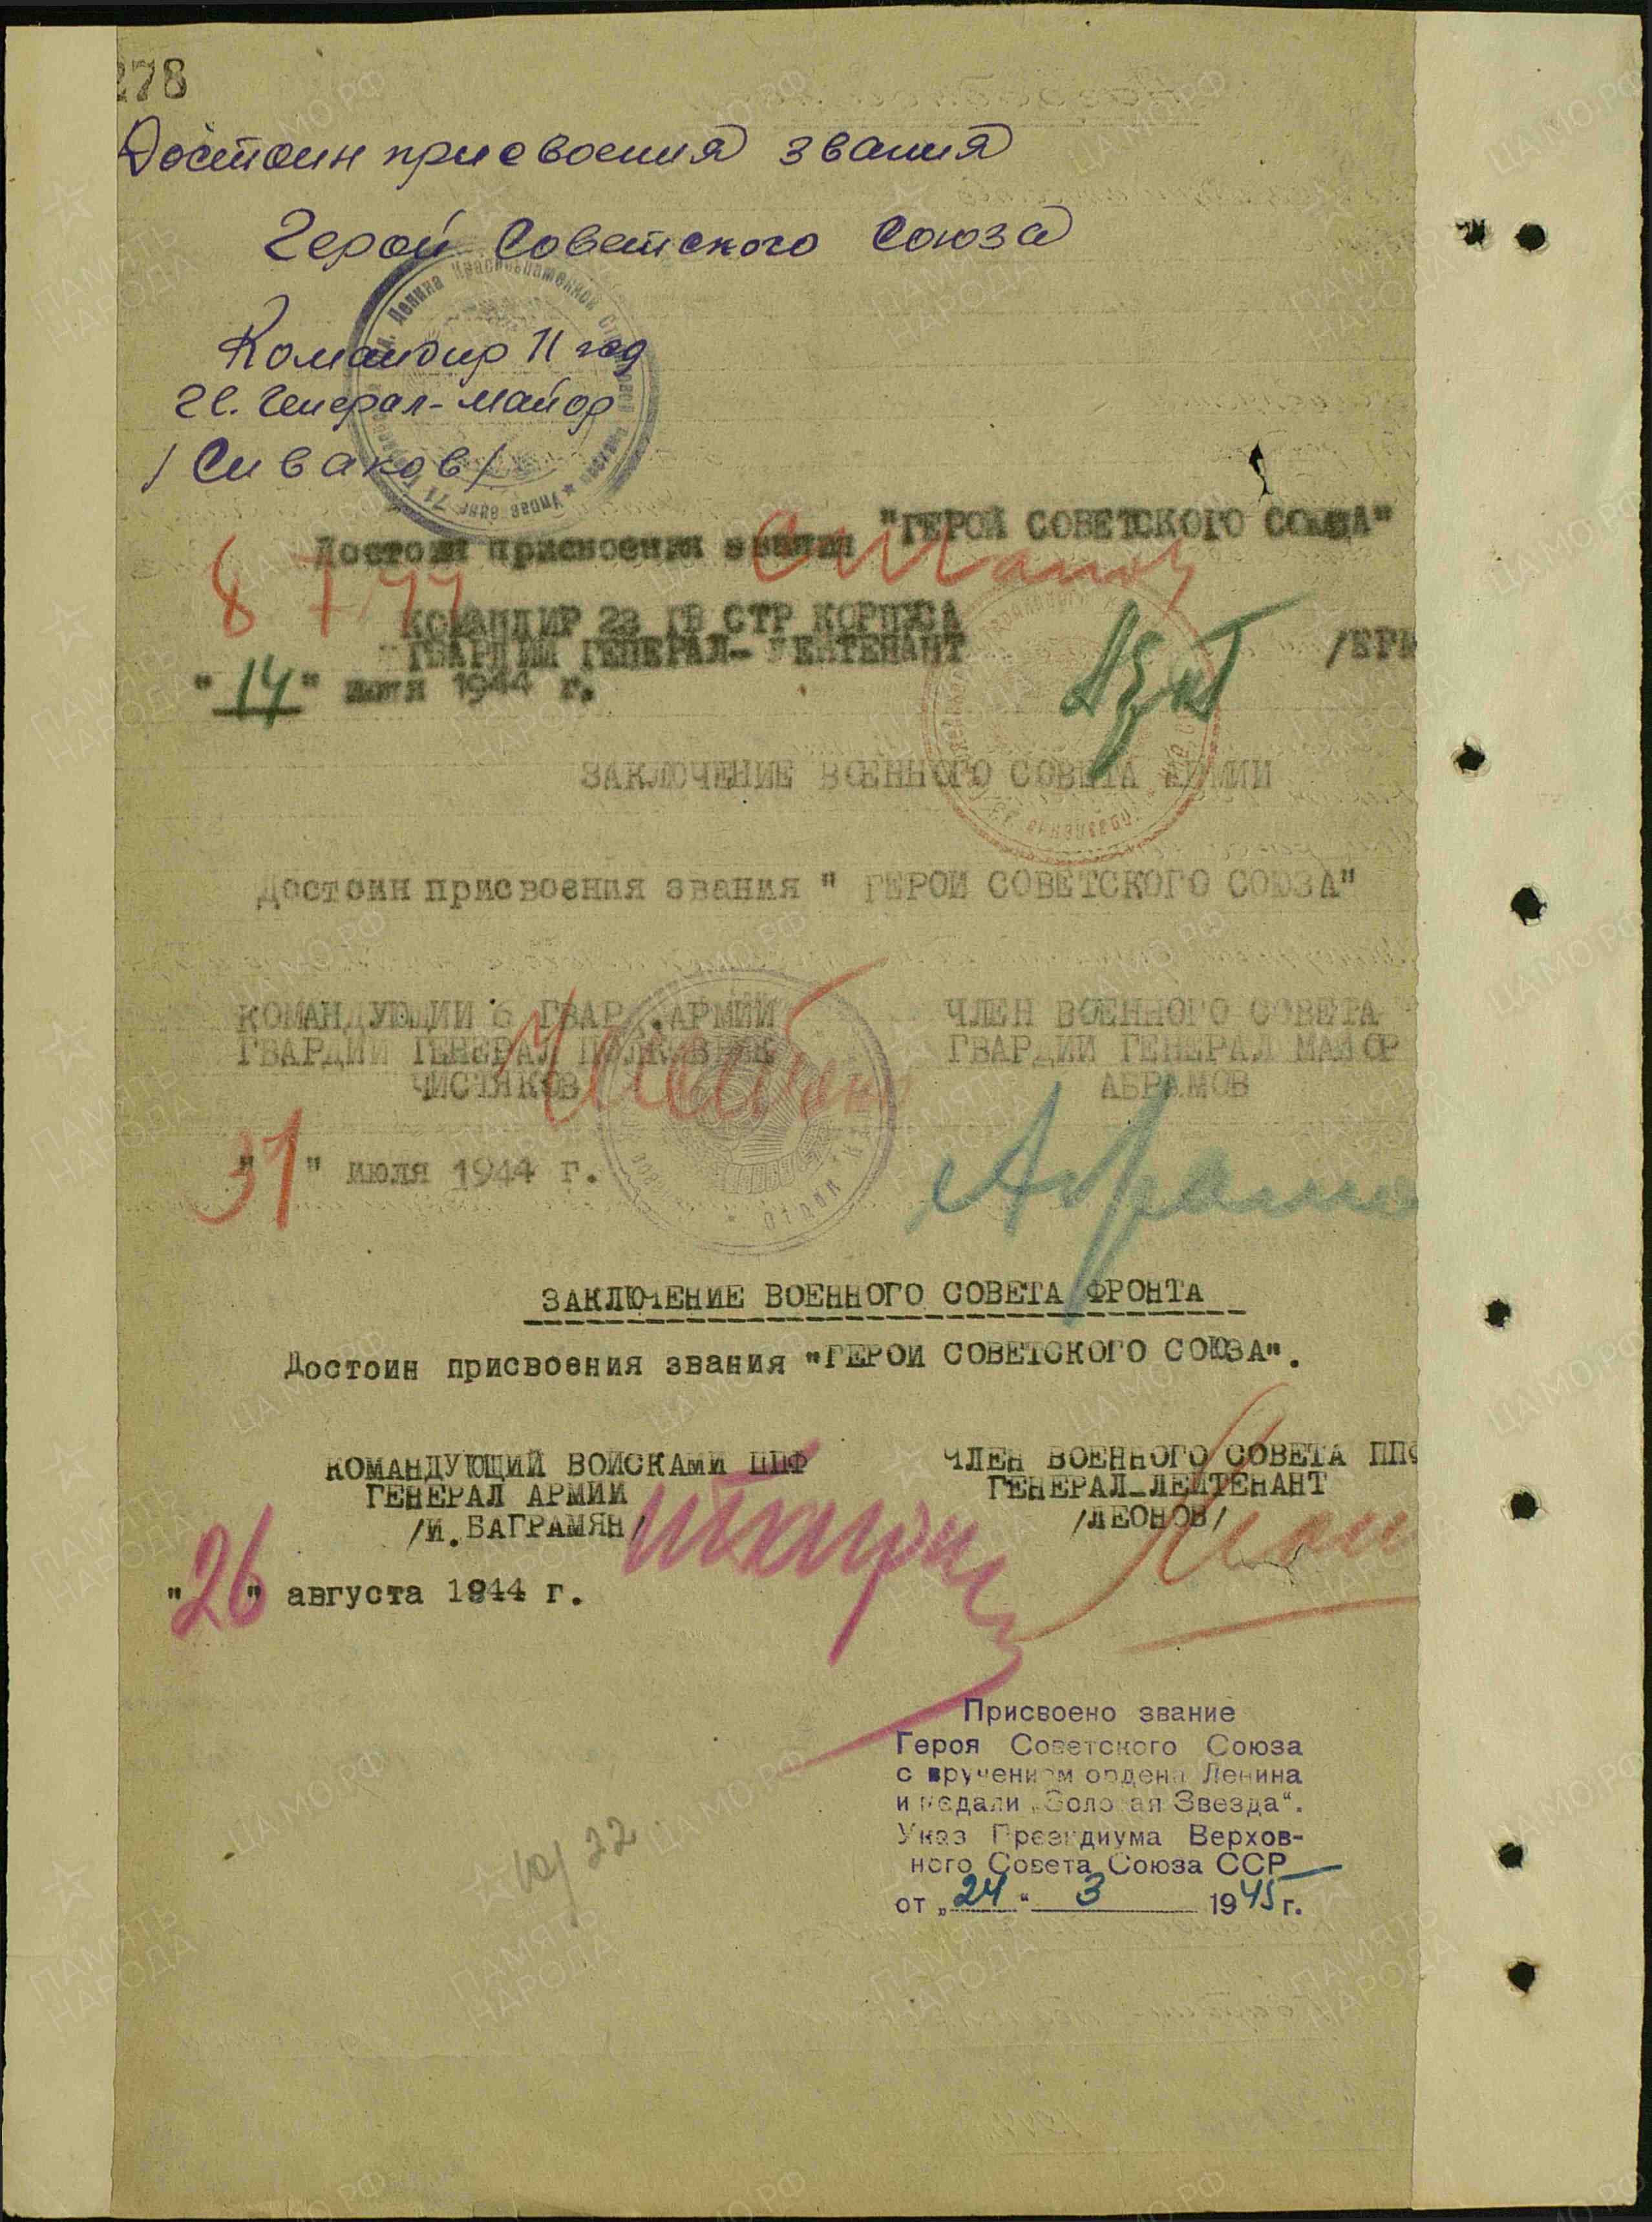 278
Достоин присвоения звания
Герой Советского Союза
Командир 71 гсд
гв. Генерал-майор
/Сиваков/
Достоин присвоения звания "ГЕРОЙ СОВЕТСКОГО СОЮЗА"
8 7 44
КОМАНДИР 23 ГВ СТР КОРПУСА
ГВАРДИИ ГЕНЕРАЛ-ЛЕЙТЕНАНТ /ЕРМ
"14" июля 1944 г.
ЗАКЛЮЧЕНИЕ ВОЕННОГО СОВЕТА АРМИИ
Достоин присвоения звания " ГЕРОЙ СОВЕТСКОГО СОЮЗА"
КОМАНДУЮЩИЙ 6 ГВАРД. АРМИИ
ГВАРДИИ ГЕНЕРАЛ ПОЛКОВНИК
ЧИСТЯКОВ
ЧЛЕН ВОЕННОГО СОВЕТА
ГВАРДИИ ГЕНЕРАЛ МАЙОР
АБРАМОВ
"31" июля 1944 г.
ЗАКЛЮЧЕНИЕ ВОЕННОГО СОВЕТА ФРОНТА
Достоин присвоения звания "ГЕРОЙ СОВЕТСКОГО СОЮЗА".
КОМАНДУЮЩИЙ ВОЙСКАМИ ППФ
ГЕНЕРАЛ АРМИИ
/И. БАГРАМЯН/
ЧЛЕН ВОЕННОГО СОВЕТА ППФ
ГЕНЕРАЛ-ЛЕЙТЕНАНТ
/ЛЕОНОВ/
"26" августа 1944 г.
Присвоено звание
Героя Советского Союза
с вручением ордена Ленина
и медали „Золотая Звезда".
Указ Президиума Верхов-
ного Совета Союза ССР
от „24" 3 1945 г.
22
ПАМЯТЬ НАРОДА
ЦАМО.РФ